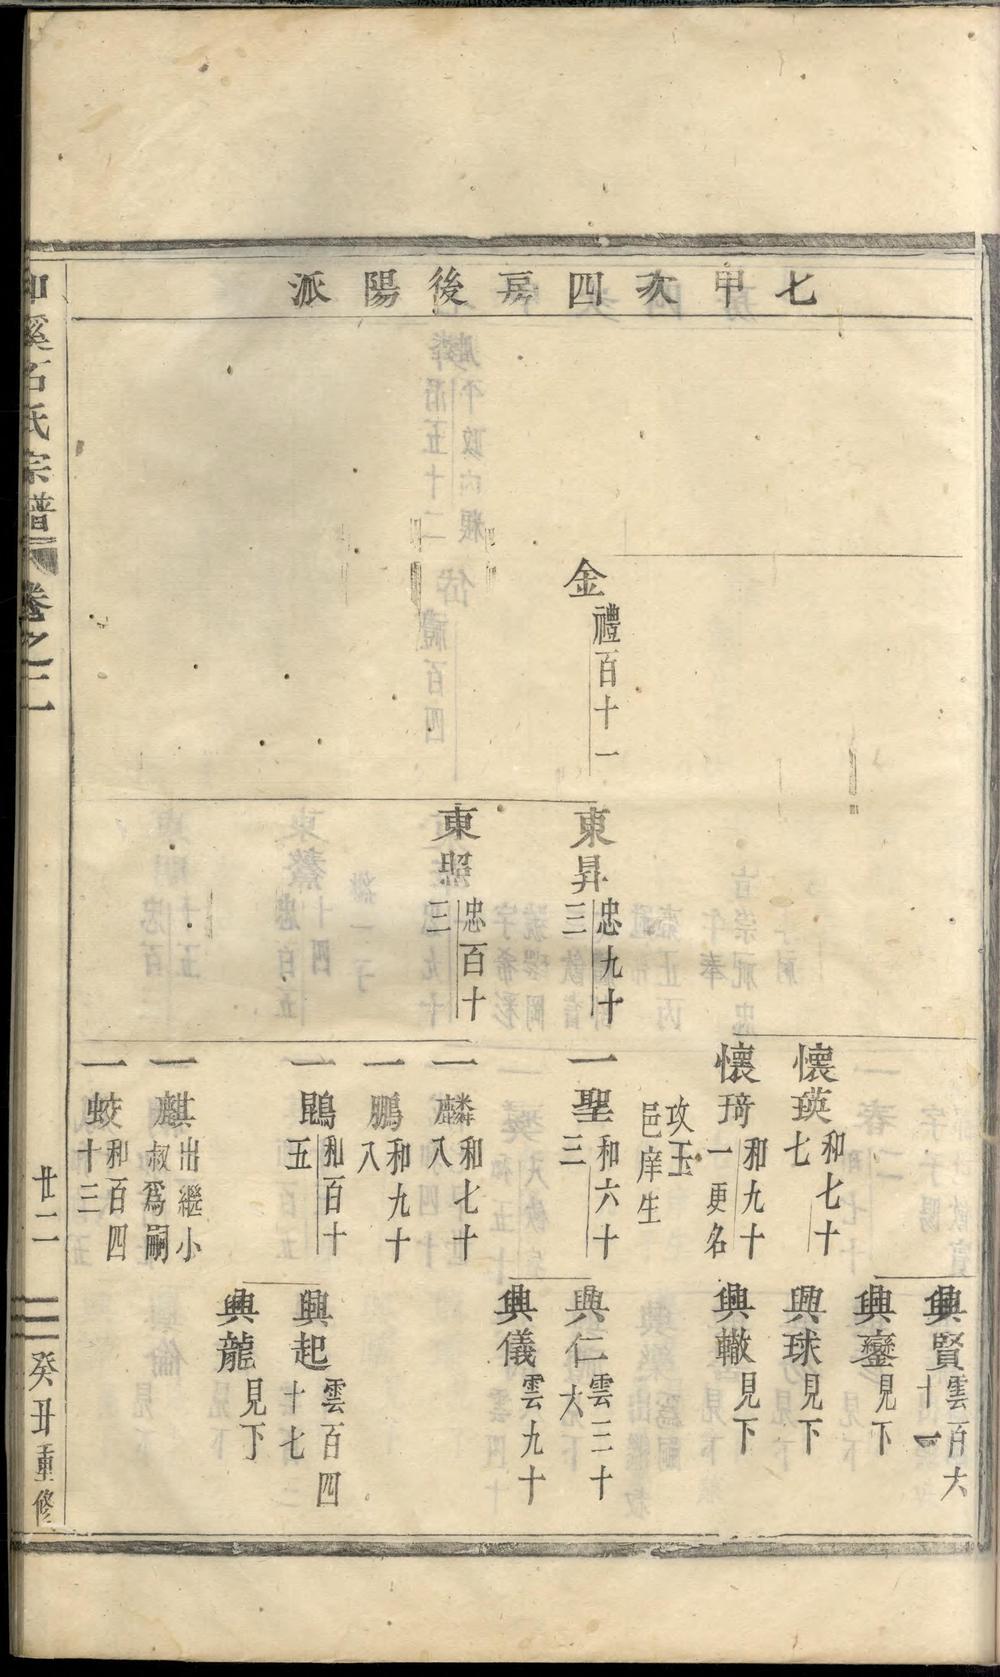 七甲次四房後陽派
金
禮百十一
東昇
忠九十三
東照
忠百十三
懷瑛
和七十七
懷琦
和九十一更名
攻玉
邑庠生
一聖
和六十三
一麟
和七十八
一鵬
和九十八
一鵾
和百十五
一麒
出繼小叔爲嗣
一蛟
和百四十三
興賢
雲百六十一
興鑾
見下
興球
見下
興轍
見下
興仁
雲三十六
興儀
雲九十
興起
雲百四十七
興龍
見下
和溪石氏宗譜
卷之二
廿二
癸丑重修